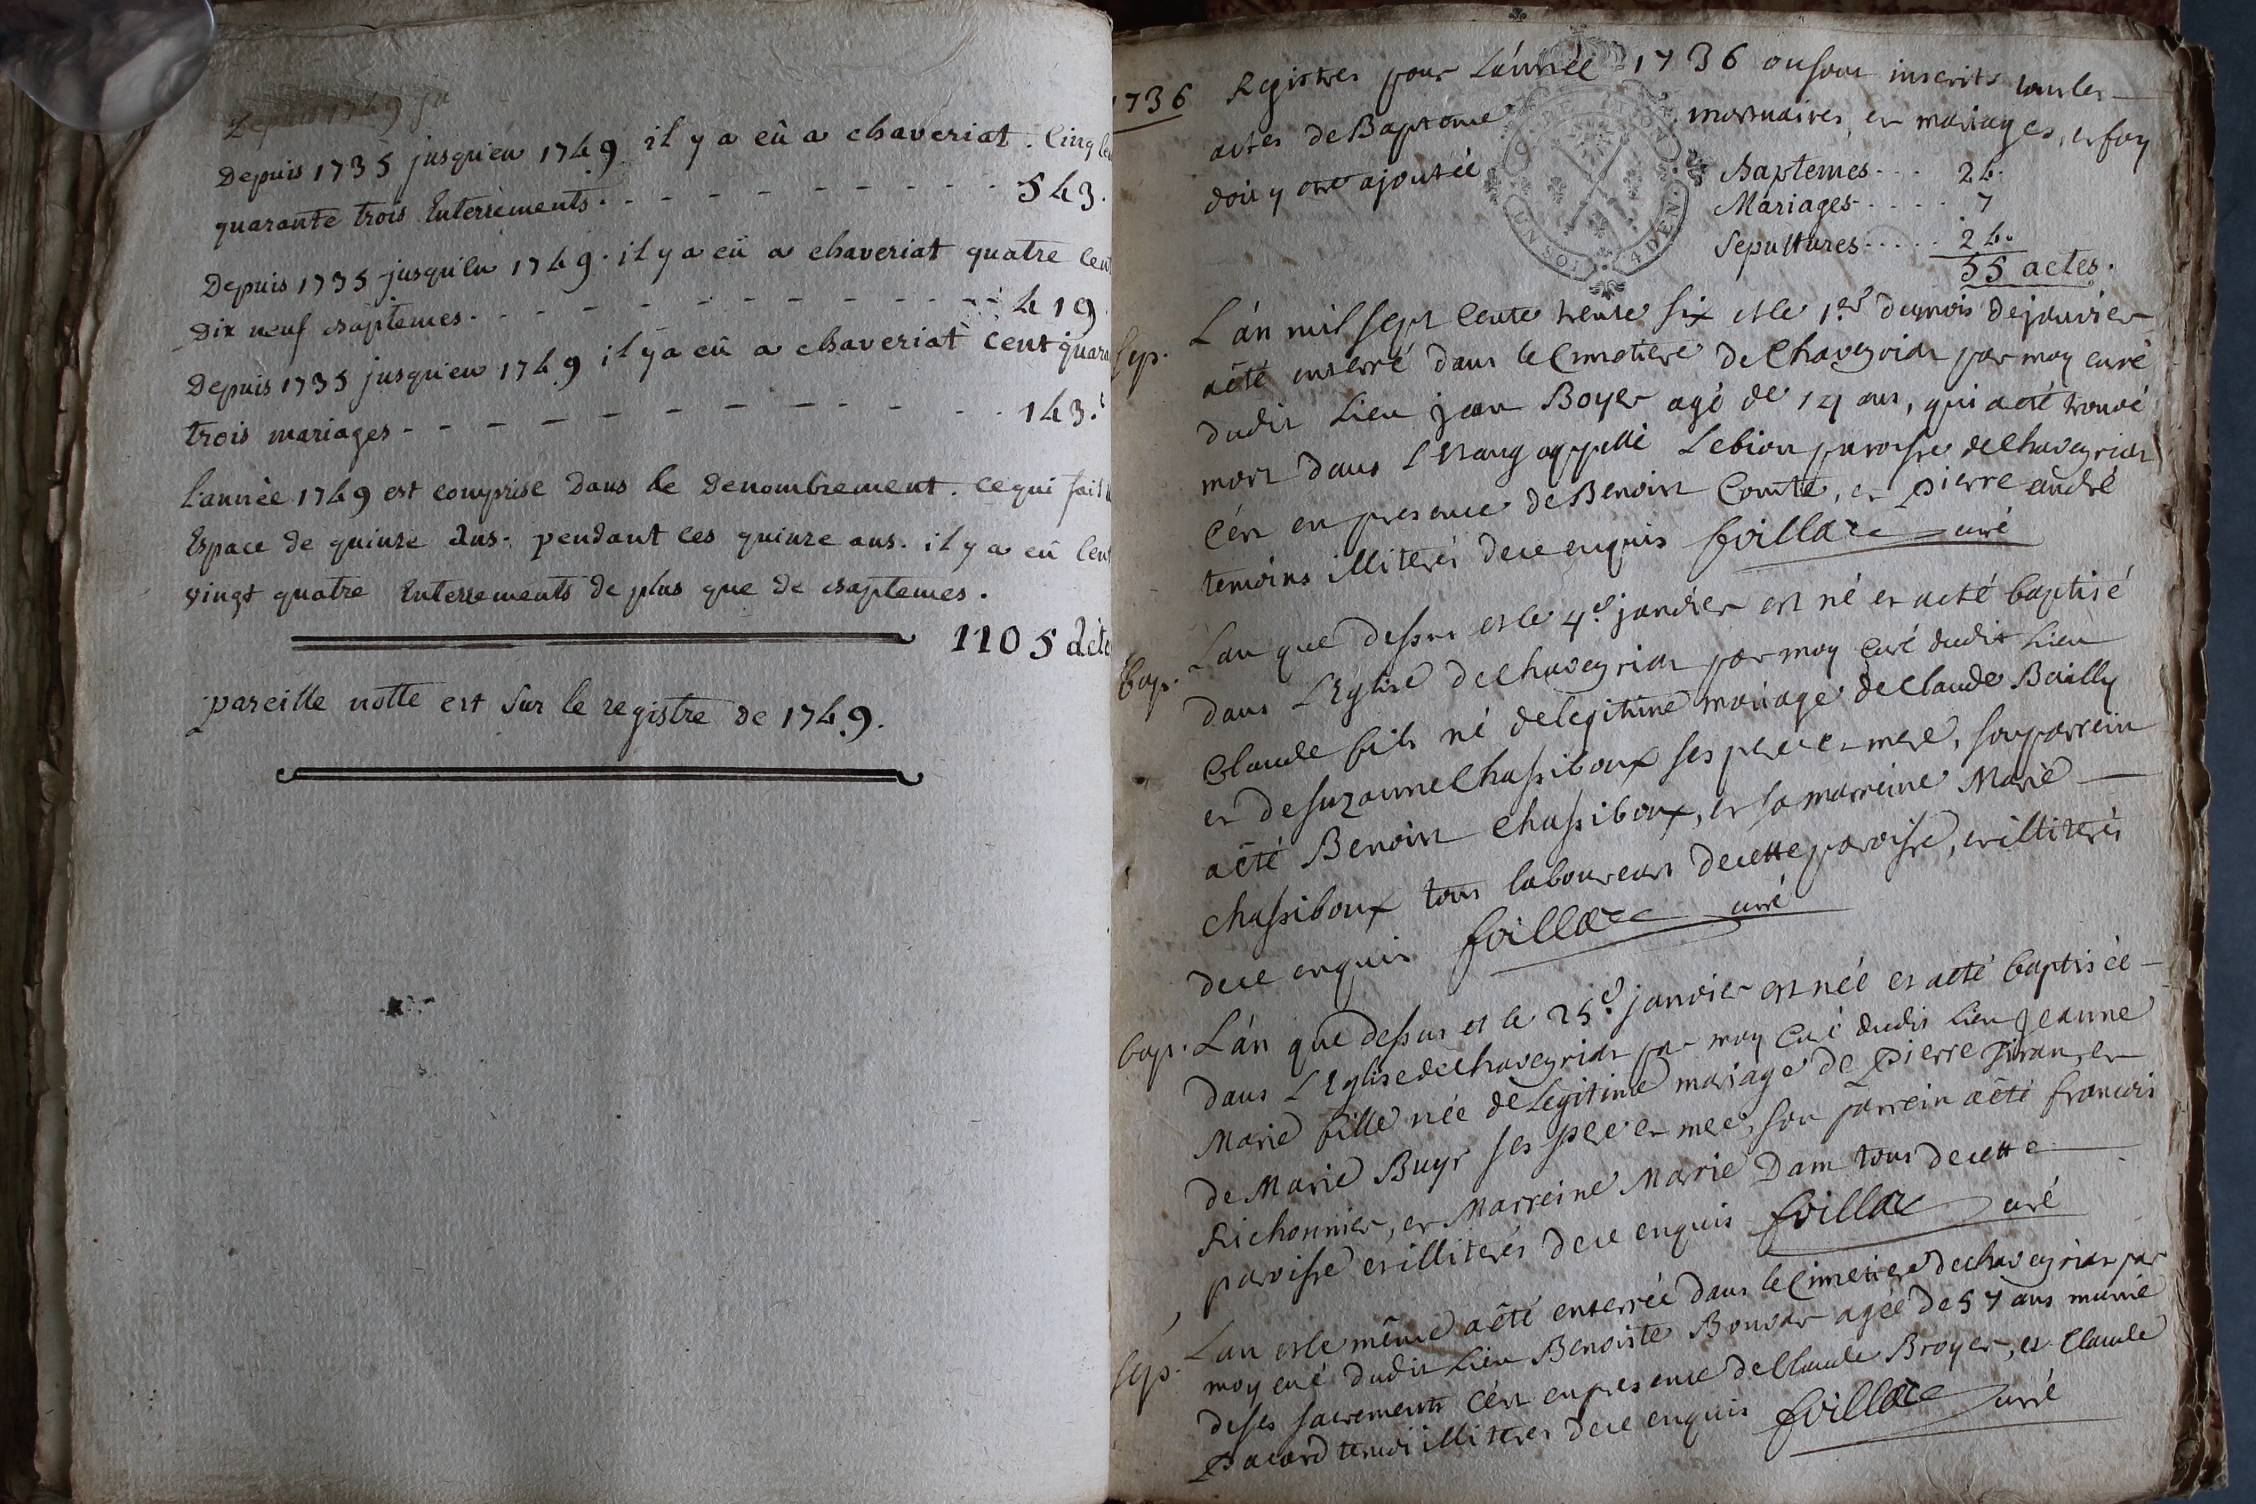 Depuis 1749 ju
Depuis 1735 jusqu'en 1749. il y a eû a chaveriat. Cinq Ce
quarante trois Enterrements. - - - - - - - - - 543.
Depuis 1735 jusqu'en 1749. il y a eû a chaveriat quatre Cen
Dix neuf Baptemes. - - - - - - - - - - - - 419
Depuis 1735 jusqu'en 1749 il y a eû a chaveriat Cent quara
trois mariages - - - - - - - - - - - - 143.
l'année 1749 est comprise Dans le Denombrement. ce qui fait
Espace de quinze Ans. pendant ces quinze ans. il y a eû Cent
vingt quatre Enterrements de plus que de Baptemes.
1105 acte
pareille notte est sur le registre de 1749.
1736 Registres pour L'année 1736 ou sont inscrits tous les
actes de Bapteme mortuaires, et mariages, et foy
doit y etre ajoutée
Baptemes - - - 24.
Mariages - - - - - 7
Sepultures - - - - - 24.
55 actes.
Sep. L'an mil sept Cente trente six et le 1er du mois de janvier
aêté enterré dans le Cimetiere de Chaveyriat par moy curé
dudit Lieu jean Boyer agé de 14 ans, qui acté trouvé
mort dans l'Etang appellé Lebion paroisse de Chaveyriat
C'est en presence de Benoist Comte, et Pierre andré
temoins illiterés de ce enquis foillac curé
bap. L'an que dessus et le 4e janvier est né et acté baptisé
dans L'Eglise de Chaveyriat par moy Curé dudit Lieu
Claude fils né de legitime mariage de Claude Bailly
et de suzanne Chassiboux ses pere et mere, son parrein
aêté Benoist Chassiboux, et sa marreine Marie
Chassiboux tous laboureurs de cette paroisse, et illiterés
de ce enquis foillac curé
bap. L'an que dessus et le 25e janvier est née et acté baptisée
dans L'Eglise de Chaveyriat par moy Curé dudit Lieu Jeanne
Marie fille née de Legitime mariage de Pierre Piran, et
de Marie Buyr ses pere et mere, son parrein aêté francois
Richonnier, et Marreine Marie Dam tous de cette
paroisse et illiterés de ce enquis foillac curé
Sep. L'an et le même aêté enterrée dans le Cimetiere de chaveyriat par
moy curé dudit Lieu Benoiste Bouvar agée de 57 ans munie
de ses sacrements C'est en presence de Claude Broyer, et Claude
Pacard temoi illiteres de ce enquis foillac curé